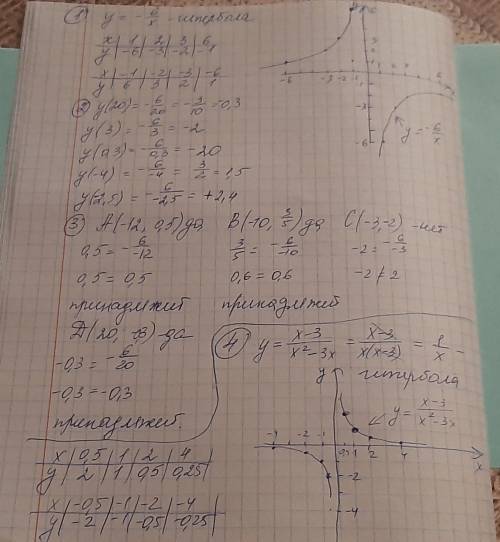 ① y = -6/x - гипербола
x | 1 | 2 | 3 | 6
y | -6 | -3 | -2 | -1
x | -1 | -2 | -3 | -6
y | 6 | 3 | 2 | 1
② y(20) = -6/20 = -3/10 = -0,3
y(3) = -6/3 = -2
y(0,3) = -6/0,3 = -20
y(-4) = -6/-4 = 3/2 = 1,5
y(-2,5) = -6/-2,5 = +2,4
-6 -3 -2 -1
-3
-6
y = -6/x
③ A(-12, 0,5) да B(-10, 3/5) да C(-3,-2) - нет
0,5 = -6/-12 3/5 = -6/-10 -2 = -6/-3
0,5 = 0,5 0,6 = 0,6 -2 ≠ 2
принадлежит принадлежит
-да
-0,3 = -6/20
-0,3 = -0,3
принадлежит.
④ y = x-3/x²-3x = x-3/x(x-3) = 1/x -
гипербола
y
y = x-3/x²-3x
-4 -2 -1 2 4 x
-2
-4
x | 0,5 | 1 | 2 | 4
y | 2 | 1 | 0,5 | 0,25
x | -0,5 | -1 | -2 | -4
y | -2 | -1 | -0,5 | -0,25